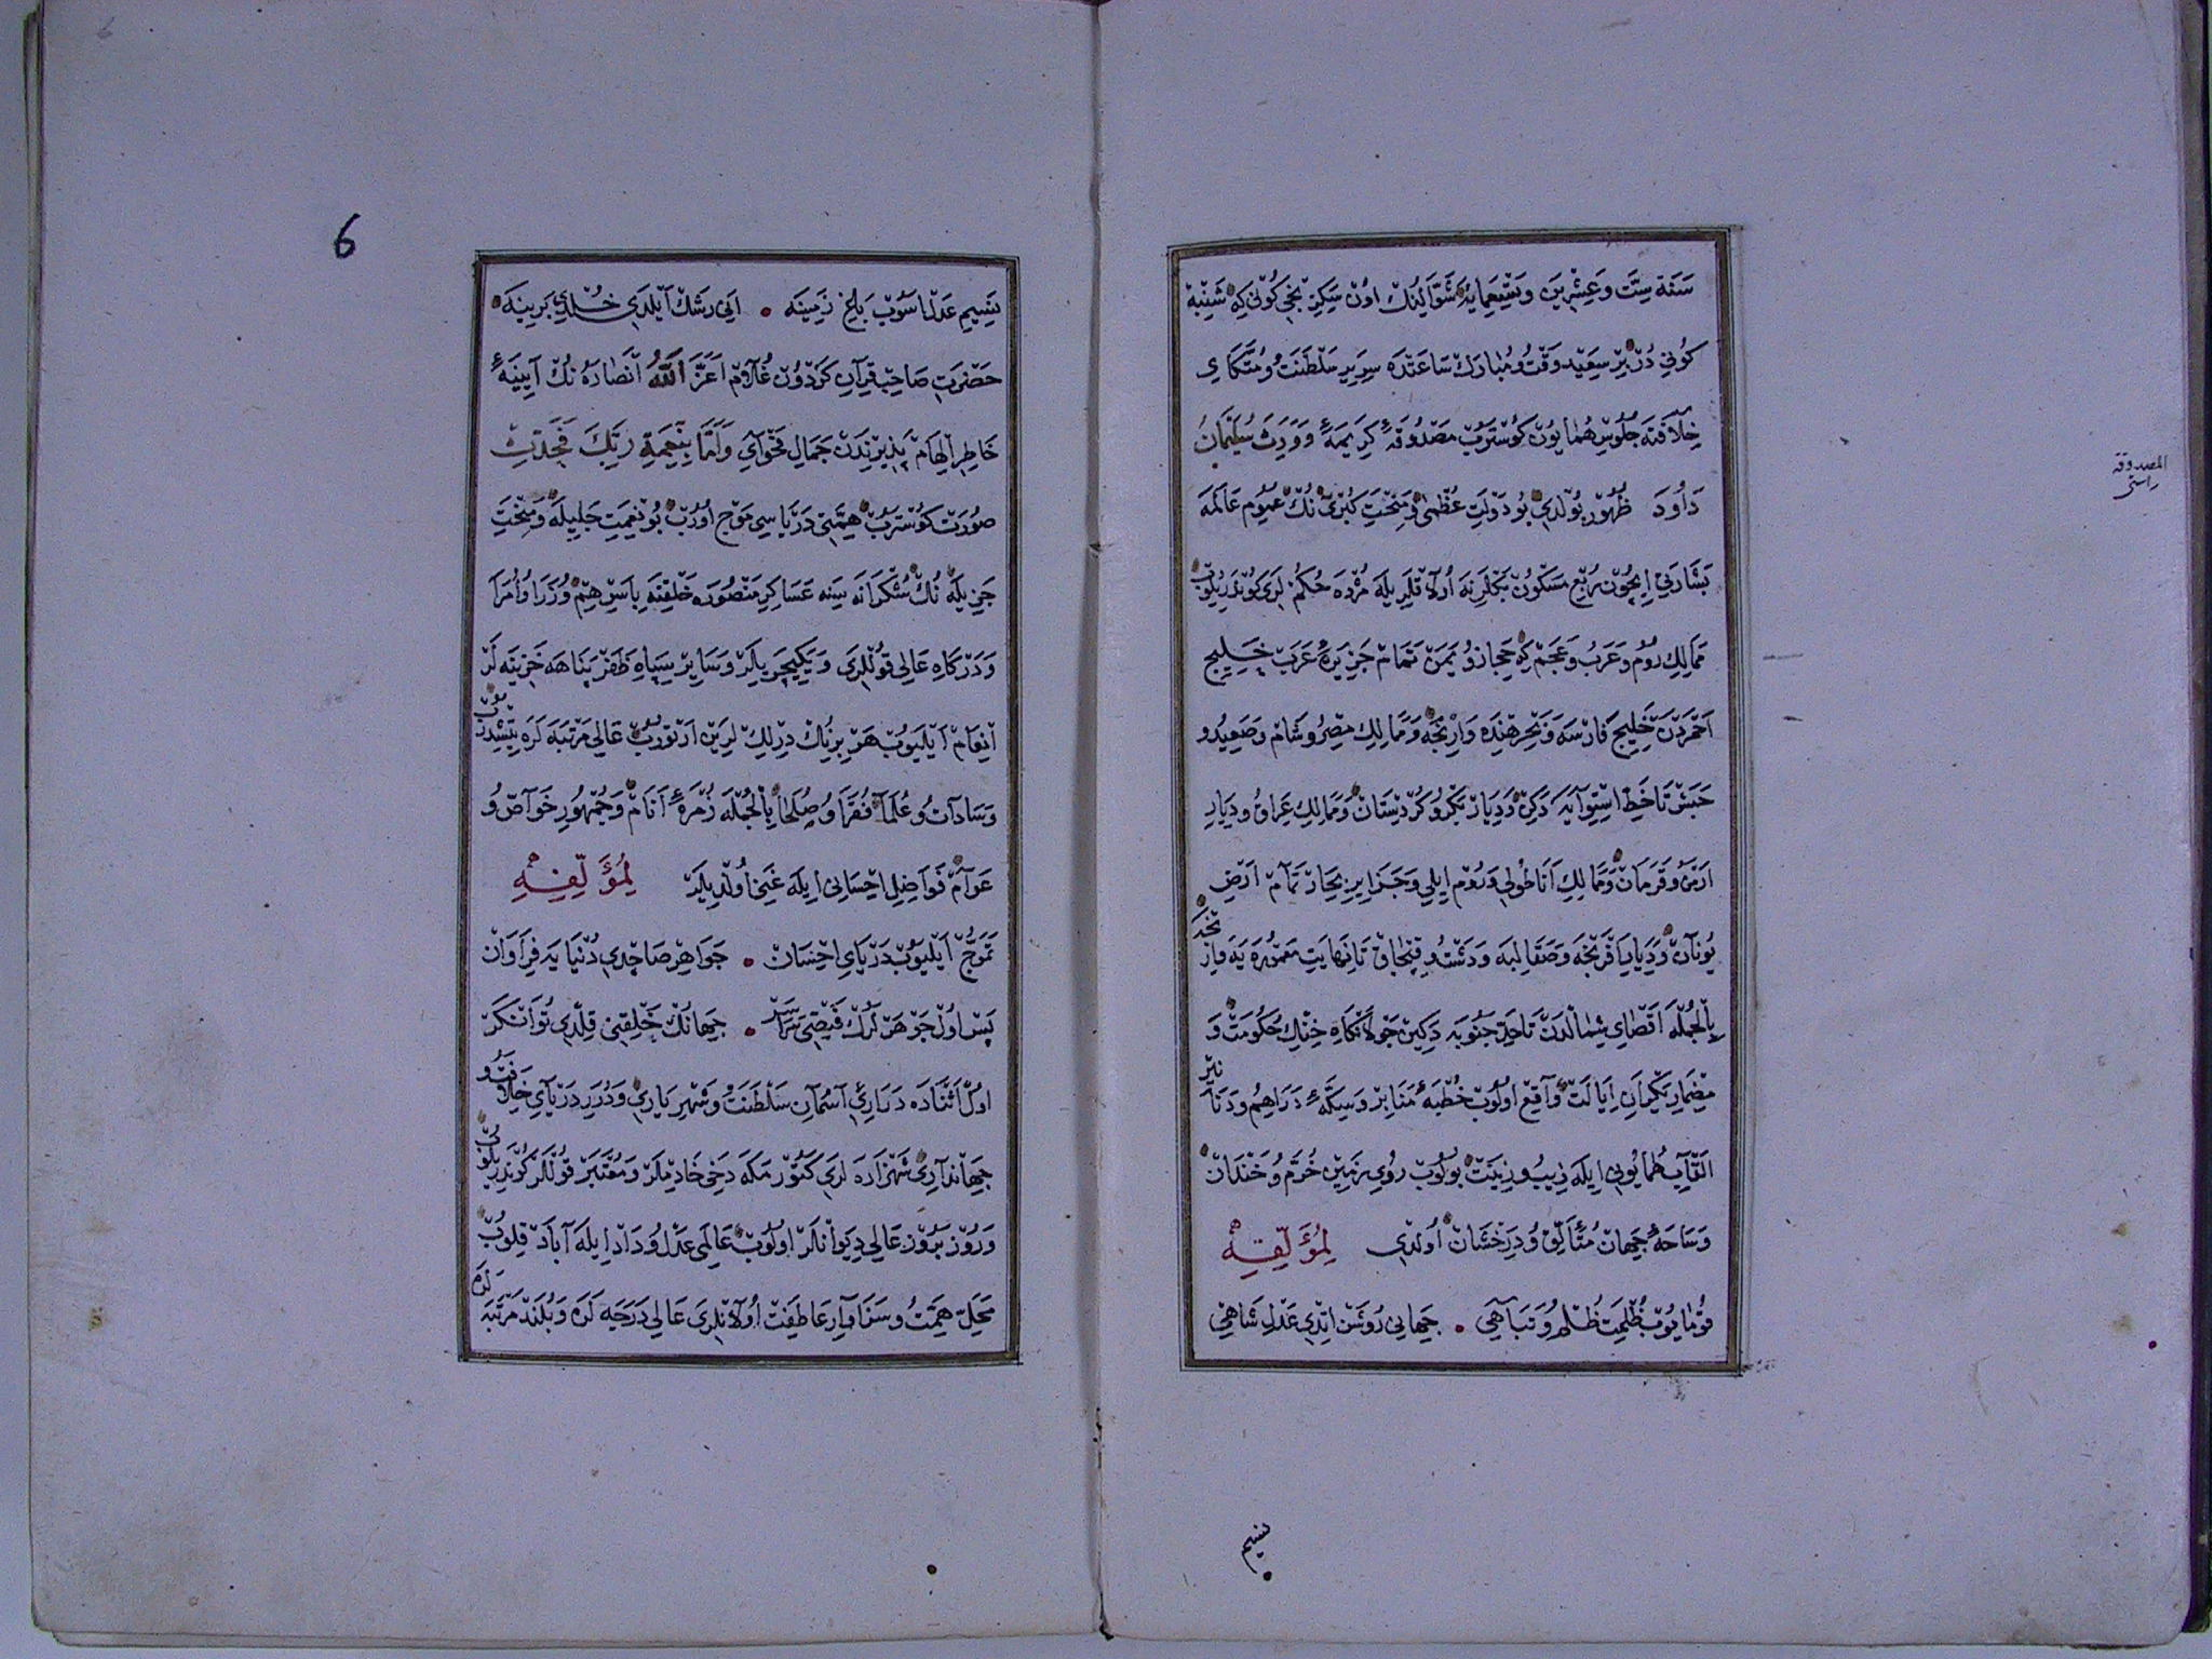 سَنَة سِتَّ وَعِشْرِينَ وَتِسْعِمِایَه شَوَّالِنُكْ اوُنْ سَكِزِنْجِی كُونِی كِه شَنْبَهْ
كُونِی دُرْ بِرْ سَعِیدْ وَقْتْ وُ مُبَارَكْ سَاعَتْدَه سَرِیرِ سَلْطَنَتْ وُ مُتَّكَایِ
خِلَافَتَه جُلُوسِ هُمَایُونْ كُوسْتَرُبْ مَصْدُوقَهٔ كَرِیمَهٔ وَوَرِثَ سُلَیْمَانُ
دَاوُدَ ظُهُورْ بُولْدِی بُو دَوْلَتِ عُظْمٰی وُ مِنْحَتِ كُبْرٰی نُكْ عُمُومِ عَالَمَه
بَشَارَتِی اِیچُونْ رُبْعِ مَسْكُونْ اُولَاقْلَرِیلَه مُژْدَه حُكُمْلَرِی كُونْدَرِیلُوبْ
مَمَالِكِ رُومْ وَعَرَبْ وَعَجَمْ كِه حِجَازْ وُ یَمَنْ تَمَامْ جَزِیرَهٔ عَرَبْ خَلِیجِ
اَحْمَرْدَنْ خَلِیجِ فَارْسَه وَبَحْرِ هِنْدَه وَارِنْجَه وَمَمَالِكِ مِصْرُ وشَامْ وَصَعِیدُ و
حَبَشْ تَا خَطِّ اسْتِوَایَه دَكِنْ وَدِیَارْ بَكْرُ وكُرْدِیسْتَانْ وَمَمَالِكِ عِرَاقْ وُ دِیَارِ
اَرْمَنْ وقَرَمَانْ وَمَمَالِكِ اَنَاطُولِی وَرُوم اِیلِی وَجَزَایِرِ بِحَارْ تَمَامْ اَرْضِ
یُونَانْ وَدِیَارِ اَفْرَنْجَه وَصَقَالِبَه وَدَشْتِ قِبْچَاقْ تَا نِهَایَتِ مَعْمُورَه یَه وَارِنْجَه
بِالْجُمْلَه اَقْصَایِ شِمَالْدَنْ تَا حَدِّ جَنُوبَه دَكِنْ جَوْلَانْكَاهِ خِنْكِ حُكُومَتْ وَ
مِضْمَارِ یَكْرَانِ اِیَالَتْ وَاقِعْ اُولُوبْ خُطْبَهٔ مَنَابِرْ وَسِكَّهٔ دَرَاهِمُ ودَنَانِیرْ
اَلْقَابِ هُمَایُونِی اِیلَه زِیبُ وزِینَتْ بُولُوبْ رُویِ زَمِینْ خُرَّمْ وُ خَنْدَانْ
وَسَاحَهٔ جِهَانْ مُتَأَلِّقْ وُ دِرَخْشَانْ اُولْدِی لِمُؤَلِّفِهِ
قُومَایُوبْ ظُلْمَتِ ظُلْمُ وتَبَاهِی • جِهَانِی رُوشَنْ اِتْدِی عَدْلِ شَاهِی
المصدوقه
راستی
نسیم
6
نَسِیمِ عَدْلْ اَسُوبْ بَاغِ زَمِینَه • اَنِی رَشْكْ اَیْلَدِی خُلْدِ بَرِینَه
حَضْرَتِ صَاحِبْ قِرَانِ كَرْدُونْ غُلَامْ اَعَزَّ اللّٰهُ اَنْصَارَهُ نُكْ آیِینَهٔ
خَاطِرِ اِلْهَامْ پَذِیرِنْدَنْ جَمَالِ فَحْوَایِ وَاَمَّا بِنِعْمَةِ رَبِّكَ فَحَدِّثْ
صُورَتْ كُوسْتَرُبْ هِمَّتِی دَرْیَاسِی مَوْج اُورُبْ بُو نِعْمَتِ جَلِیلَه وَمِنْحَتِ
جَزِیلَه نُكْ شُكْرَانَه سِینَه عَسَاكِرِ مَنْصُورَه خَلْقِنَه بِاَسْرِهِمْ وُزَرَا وُ اُمَرَا
وَدَرْكَاهِ عَالِی قُولْلَرِی وَیَكِیچَرِیلَرْ وَسَایِرِ سِپَاهِ ظَفَرْ پَنَاهَه خَزِینَه لَرْ
اِنْعَامْ اَیْلَیُوبْ هَرْ بِرِنُكْ دِرْلِكْ لَرِینْ اَرْتُورُبْ عَالِی مَرْتَبَه لَرَه یِتِشْدِرُبْ
وَسَادَاتْ وُ عُلَمَا فُقَرَا وُ صُلَحَا بِالْجُمْلَه زُمْرَهٔ اَنَامْ وَجُمْهُورِ خَوَاصْ وُ
عَوَامْ فَوَاضِلِ اِحْسَانِی اِیلَه غَنِی اُولْدِیلَرْ لِمُؤَلِّفِهِ
تَمَوُّجْ اَیْلَیُوبْ دَرْیَایِ اِحْسَانْ • جَوَاهِرْ صَاچْدِی دُنْیَایَه فِرَاوَانْ
پَسْ اُولْ جَوْهَرْلَرُكْ فَیْضِی سَرَاسَرْ • جِهَانُكْ خَلْقِنِی قِلْدِی تُوَانْكَرْ
اُولْ اَثْنَادَه دَرَارِیِ آسْمَانِ سَلْطَنَتْ وَشَهْرِیَارِی وَدُرَرِ دَرْیَایِ خِلَافَتْ وُ
جِهَانْدَارِی شَهْزَادَه لَرِی كَتُورْمَكَه دَخِی خَادِمْلَرْ وَمُعْتَبَرْ قُولْلَرْ كُونْدَرِیلُوبْ
وَرُوزْ بَرُوزْ عَالِی دِیوَانْلَرْ اُولُوبْ عَالَمِی عَدْلْ وُ دَادْ اِیلَه آبَادْ قِلُوبْ
مَحَلِّ هِمَّتْ وُ سَزَاوَارِ عَاطِفَتْ اُولَانْلَرِی عَالِی دَرَجَه لَرَه وَبُلَنْدْ مَرْتَبَه لَرَه